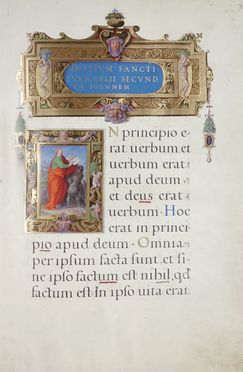 INITIVM SANCTI
EVANGELII SECVND
VM IOANNEM
N principio e-
rat uerbum et
uerbum erat
apud deum
et deus erat
uerbum· Hoc
erat in princi
pio apud deum· Omnia
per ipsum facta sunt, et si-
ne ipso factum est nihil, qd
factum est· In ipso uita erat·